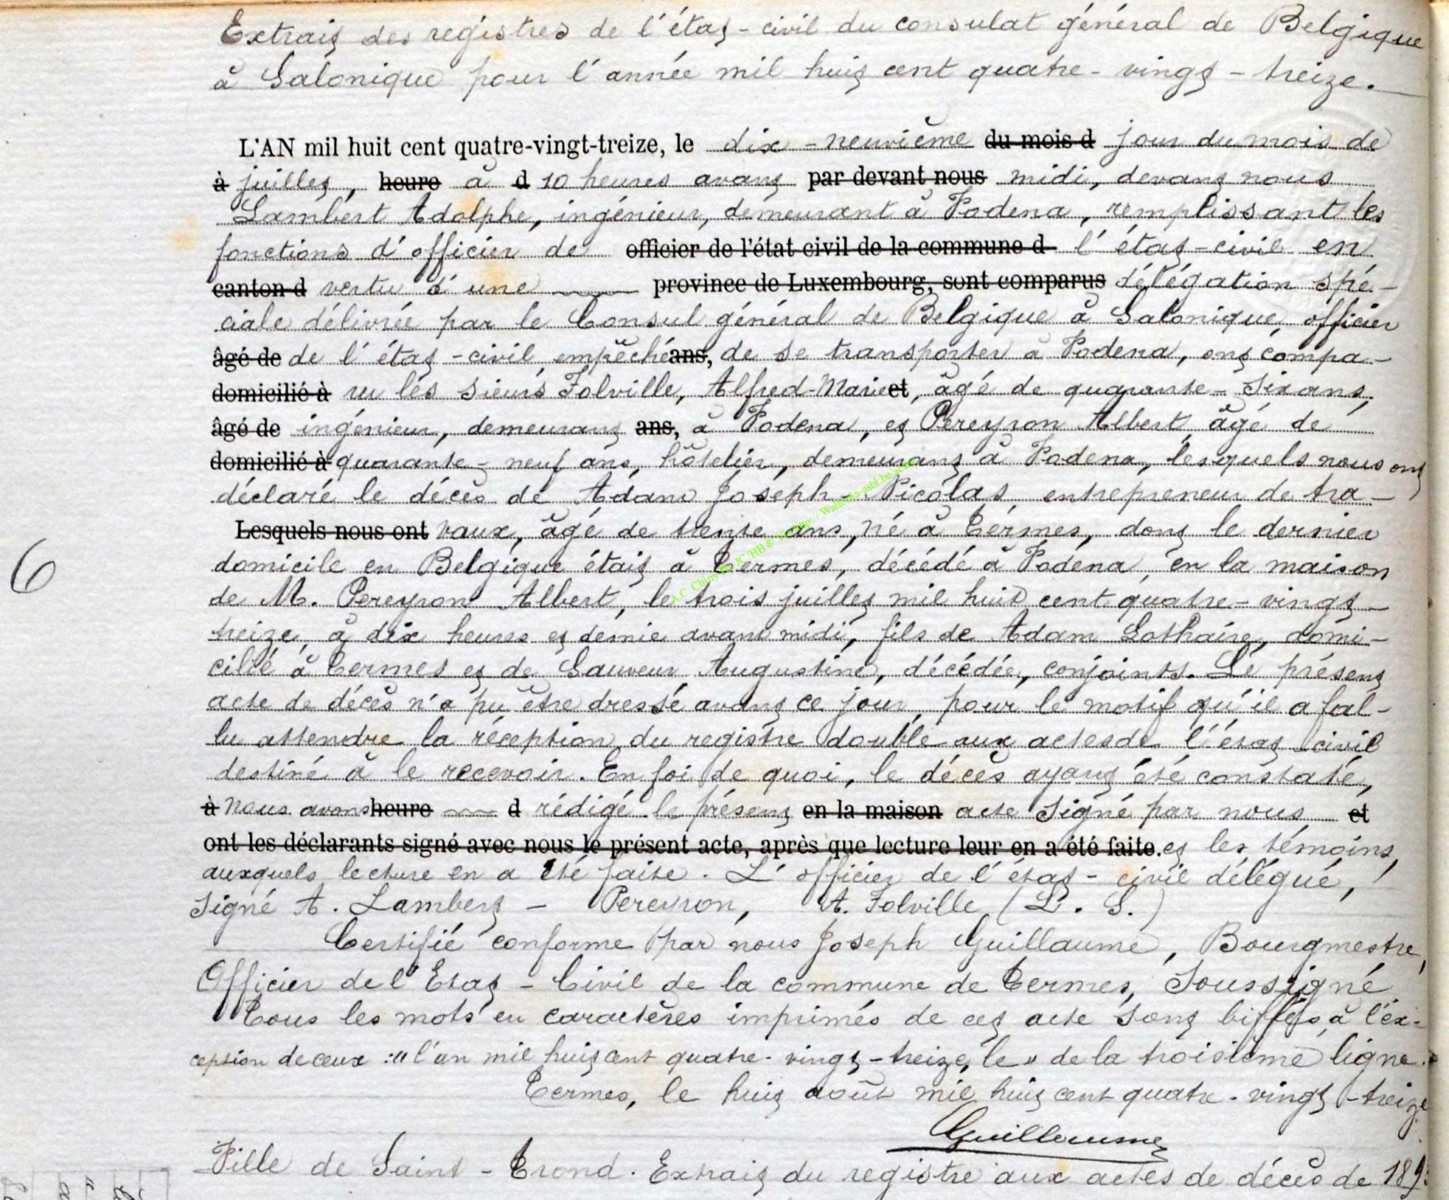 Extrait des registres de l'état-civil du consulat général de Belgique
à Salonique pour l'année mil huit cent quatre-vingt-treize.
L'AN mil huit cent quatre-vingt-treize, le dix-neuvième du mois d jour du mois de
à juillet, heure à d 10 heures avant par devant nous midi, devant nous
Lambert Adolphe, ingénieur, demeurant à Vodena, remplissant les
fonctions d'officier de officier de l'état civil de la commune d l'état-civil en
canton d vertu d'une province de Luxembourg, sont comparus délégation spé-
ciale délivrée par le Consul général de Belgique à Salonique, officier
âgé de de l'état-civil empêché ans, de se transporter à Vodena, ont compa-
domicilié à ru les sieurs Folville, Alfred-Marie et, âgé de quarante-six ans,
âgé de ingénieur, demeurant ans, à Vodena, et Pereyron Albert âgé de
domicilié à quarante-neuf ans, hôtelier, demeurant à Vodena, lesquels nous ont
déclaré le décès de Adam Joseph Nicolas, entrepreneur de tra-
Lesquels nous ont vaux, âgé de trente ans, né à Termes, dont le dernier
domicile en Belgique était à Termes, décédé à Vodena en la maison
de M. Pereyron Albert, le trois juillet mil huit cent quatre-vingt-
treize, à dix heures et demie avant midi, fils de Adam Lothaire, domi-
cilié à Termes et de Sauveur Augustine, décédée, conjoints. Le présent
acte de décès n'a pu être dressé avant ce jour, pour le motif qu'il a fal-
lu attendre la réception du registre double aux actes de l'état-civil
destiné à le recevoir. En foi de quoi, le décès ayant été constaté,
à nous avons heure d rédigé le présent en la maison acte signé par nous et
ont les déclarants signé avec nous le présent acte, après que lecture leur en a été faite. et les témoins,
auxquels lecture en a été faite. L'officier de l'état-civil délégué,
signé A. Lambert - Pereyron, A. Folville (L. S.)
Certifié conforme par nous Joseph Guillaume, Bourgmestre,
Officier de l'Etat-Civil de la commune de Termes, Soussigné
Tous les mots en caractères imprimés de cet acte sont biffés, à l'ex-
ception de ceux : "l'an mil huit cent quatre-vingt-treize, le" de la troisième ligne.
Termes, le huit août mil huit cent quatre-vingt-treize
Guillaume
6
Ville de Saint-Trond. Extrait du registre aux actes de décès de 189